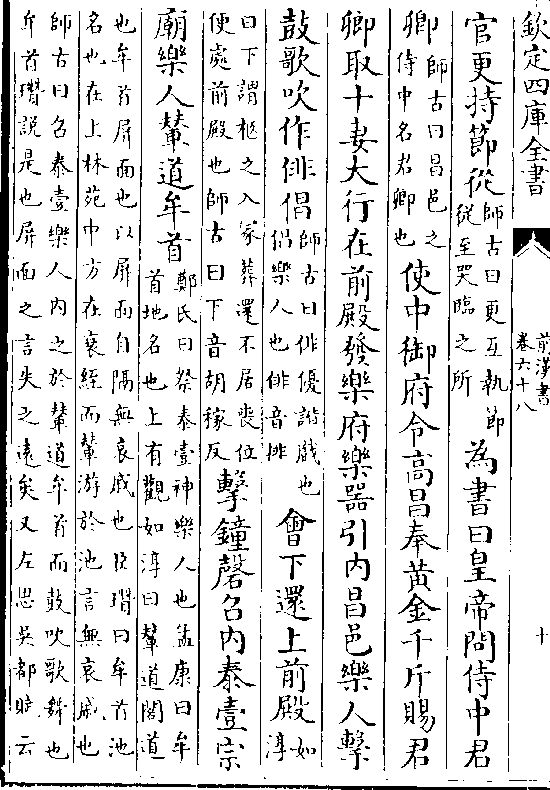 欽定四庫全書
前漢書
卷六十八
十
官更持節從師古曰更互執節從至哭臨之所為書曰皇帝問侍中君
卿師古曰昌邑之侍中名君卿也使中御府令高昌奉黄金千斤賜君
卿取十妻大行在前殿發樂府樂器引内昌邑樂人擊
鼓歌吹作俳倡師古曰俳優諧戲也倡樂人也俳音排會下還上前殿如淳
曰下謂柩之入冢葬還不居喪位
便處前殿也師古曰下音胡稼反擊鐘磬召内泰壹宗
廟樂人輦道牟首鄭氏曰祭泰壹神樂人也孟康曰牟
首地名也上有觀如淳曰輦道閣道
也牟首屏面也以屏面自隔無哀戚也臣瓚曰牟首池
名也在上林苑中方在衰絰而輦游於池言無哀戚也
師古曰召泰壹樂人内之於輦道牟首而鼓吹歌舞也
牟首瓚説是也屏面之言失之遠矣又左思吳都賦云